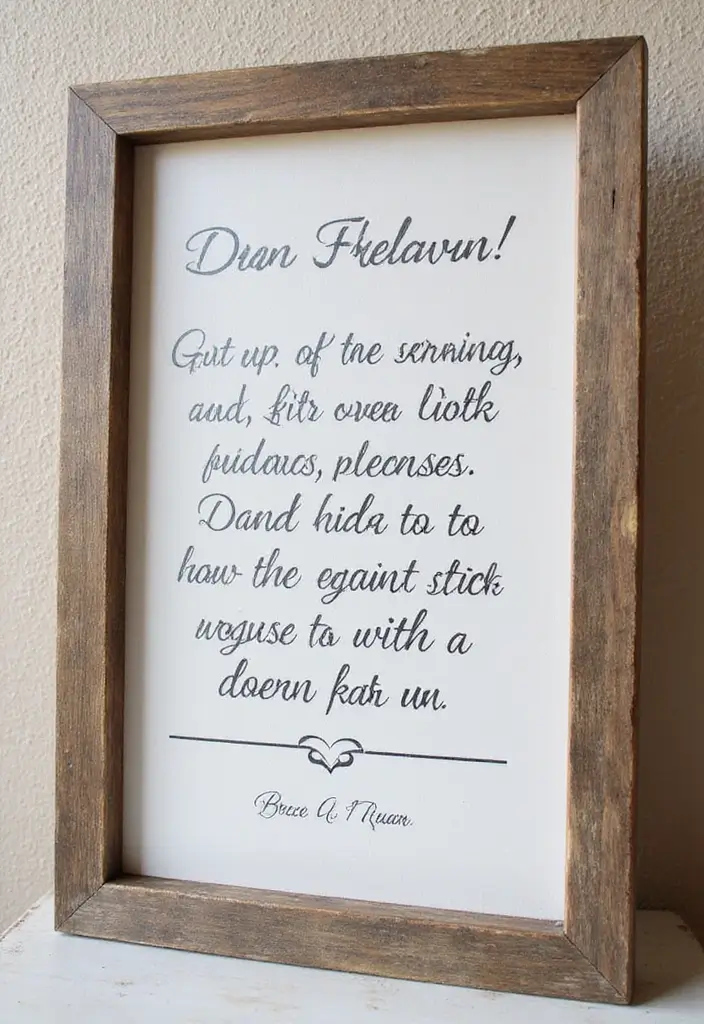 Dran Frelavun!
Gut up. of tne sernining,
aud, fitr ovea liotk
fuidaucs, plecnses.
Dand hida to to
how the egaint stick
woguse to with a
doenn kah un.